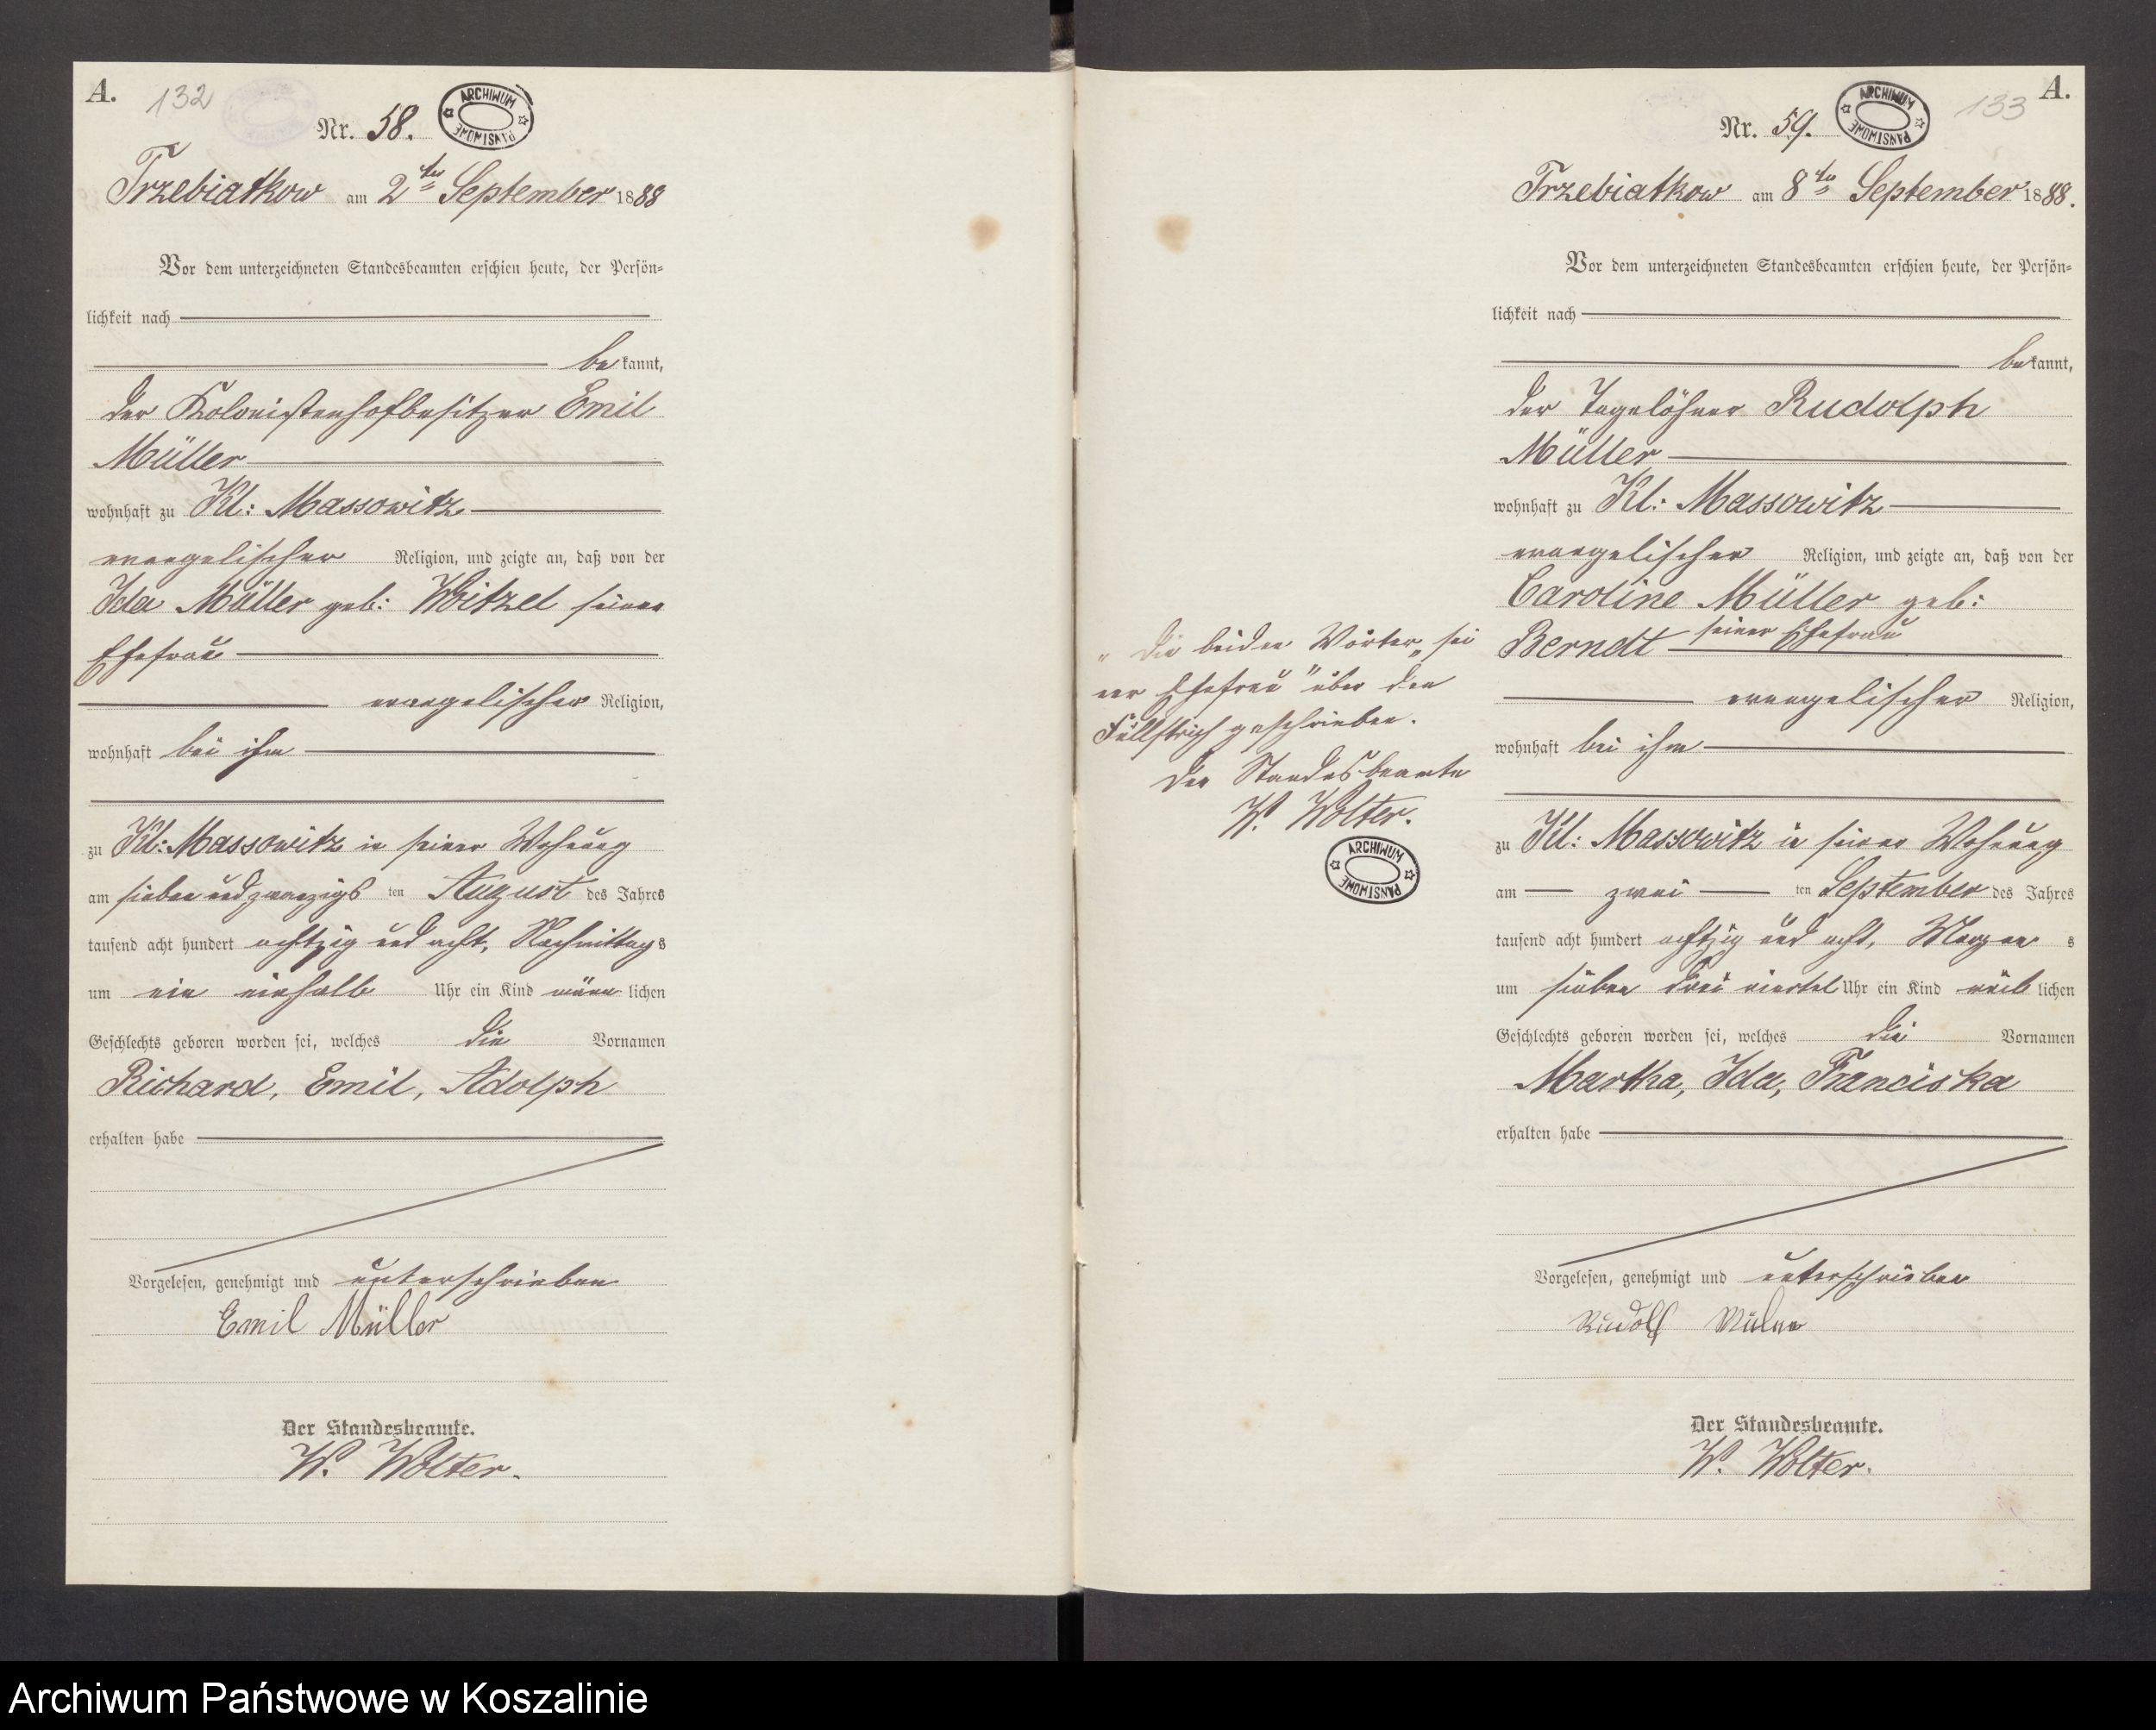 A.
132
Nr. 58.
ARCHIWUM PAŃSTWOWE
Trzebiatkow am 2ten September 1888
Vor dem unterzeichneten Standesbeamten erschien heute, der Persön-
lichkeit nach
bekannt,
der Kolonistenhofbesitzer Emil
Müller
wohnhaft zu Kl: Massowitz
evangelischer Religion, und zeigte an, daß von der
Ida Müller geb: Witzel seiner
Ehefrau
evangelischer Religion,
wohnhaft bei ihm
zu Kl: Massowitz in seiner Wohnung
am sieben und zwanzigsten August des Jahres
tausend acht hundert achtzig und acht, Nachmittags
um ein einhalb Uhr ein Kind männlichen
Geschlechts geboren worden sei, welches die Vornamen
Richard, Emil, Adolph
erhalten habe
Vorgelesen, genehmigt und unterschrieben
Emil Müller
Der Standesbeamte.
W. Wolter.
A.
133
Nr. 59.
ARCHIWUM PAŃSTWOWE
Trzebiatkow am 8ten September 1888.
Vor dem unterzeichneten Standesbeamten erschien heute, der Persön-
lichkeit nach
bekannt,
der Tagelöhner Rudolph
Müller
wohnhaft zu Kl: Massowitz
evangelischer Religion, und zeigte an, daß von der
Caroline Müller geb:
Berndt seiner Ehefrau
evangelischer Religion,
wohnhaft bei ihm
zu Kl: Massowitz in seiner Wohnung
am zweiten September des Jahres
tausend acht hundert achtzig und acht, Morgens
um sieben drei viertel Uhr ein Kind weiblichen
Geschlechts geboren worden sei, welches die Vornamen
Martha, Ida, Franciska
erhalten habe
Vorgelesen, genehmigt und unterschrieben
Rudolf
Der Standesbeamte.
W. Wolter.
"Die beiden Wörter „sei
ner Ehefrau" über den
Füllstrich geschrieben.
Der Standesbeamte
W. Wolter.
ARCHIWUM PAŃSTWOWE
Archiwum Państwowe w Koszalinie